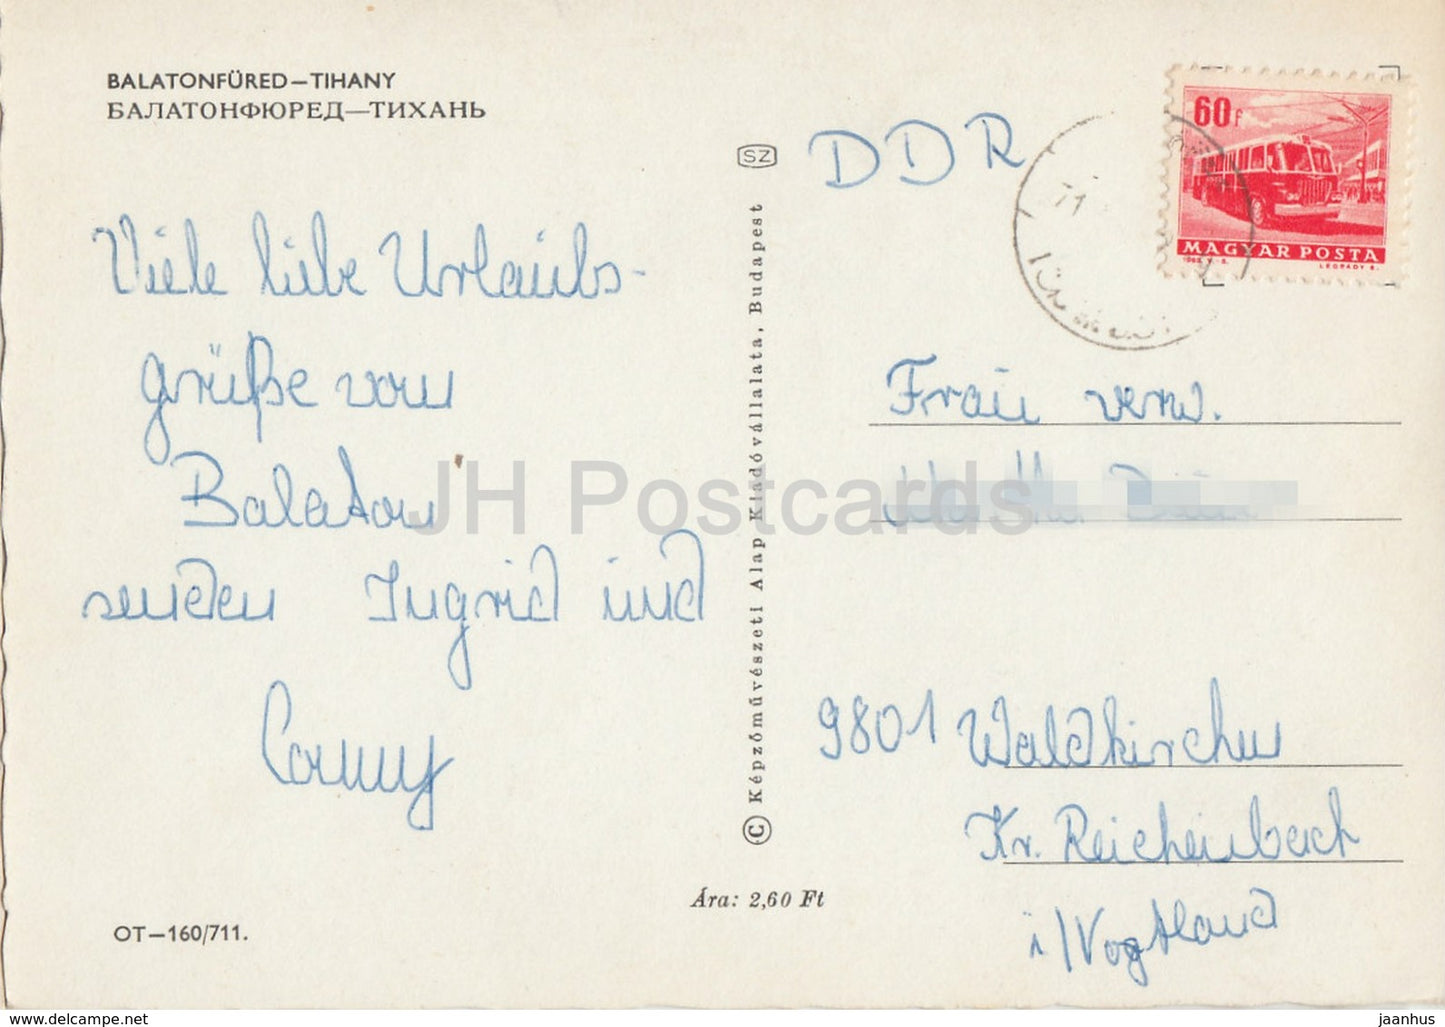 BALATONFÜRED—TIHANY
БАЛАТОНФЮРЕД—ТИХАНЬ
Viele liebe Urlaubs-
grüße von
Balaton
senden Ingrid und
Conny
OT—160/711.
SZ
© Képzőművészeti Alap Kiadóvállalata, Budapest
Ára: 2,60 Ft
DDR
60f
MAGYAR POSTA
LÉGRÁDY S.
71
Frau verw.
9801 Waldkirchen
Kr. Reichenbach
i/Vogtland
JH Postcards
www.delcampe.net
jaanhus